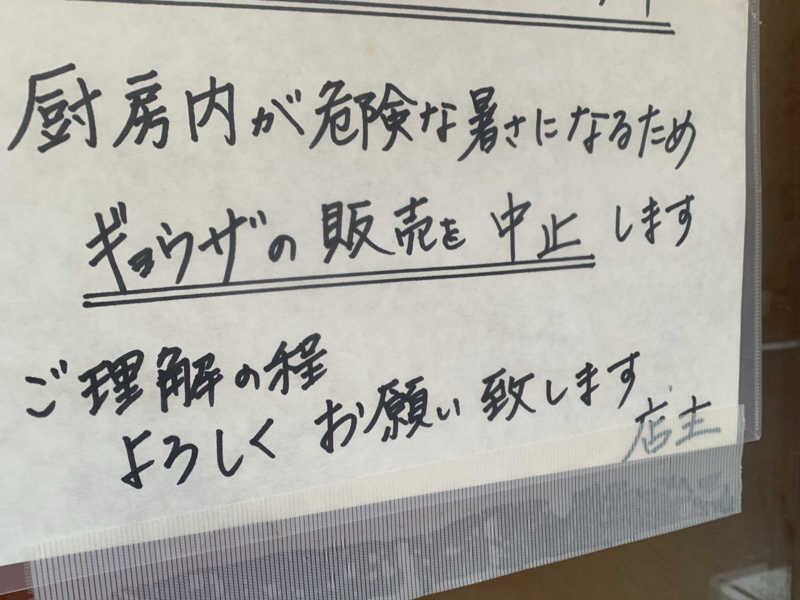 厨房内が危険な暑さになるため
ギョウザの販売を中止します
ご理解の程
よろしくお願い致します
店主